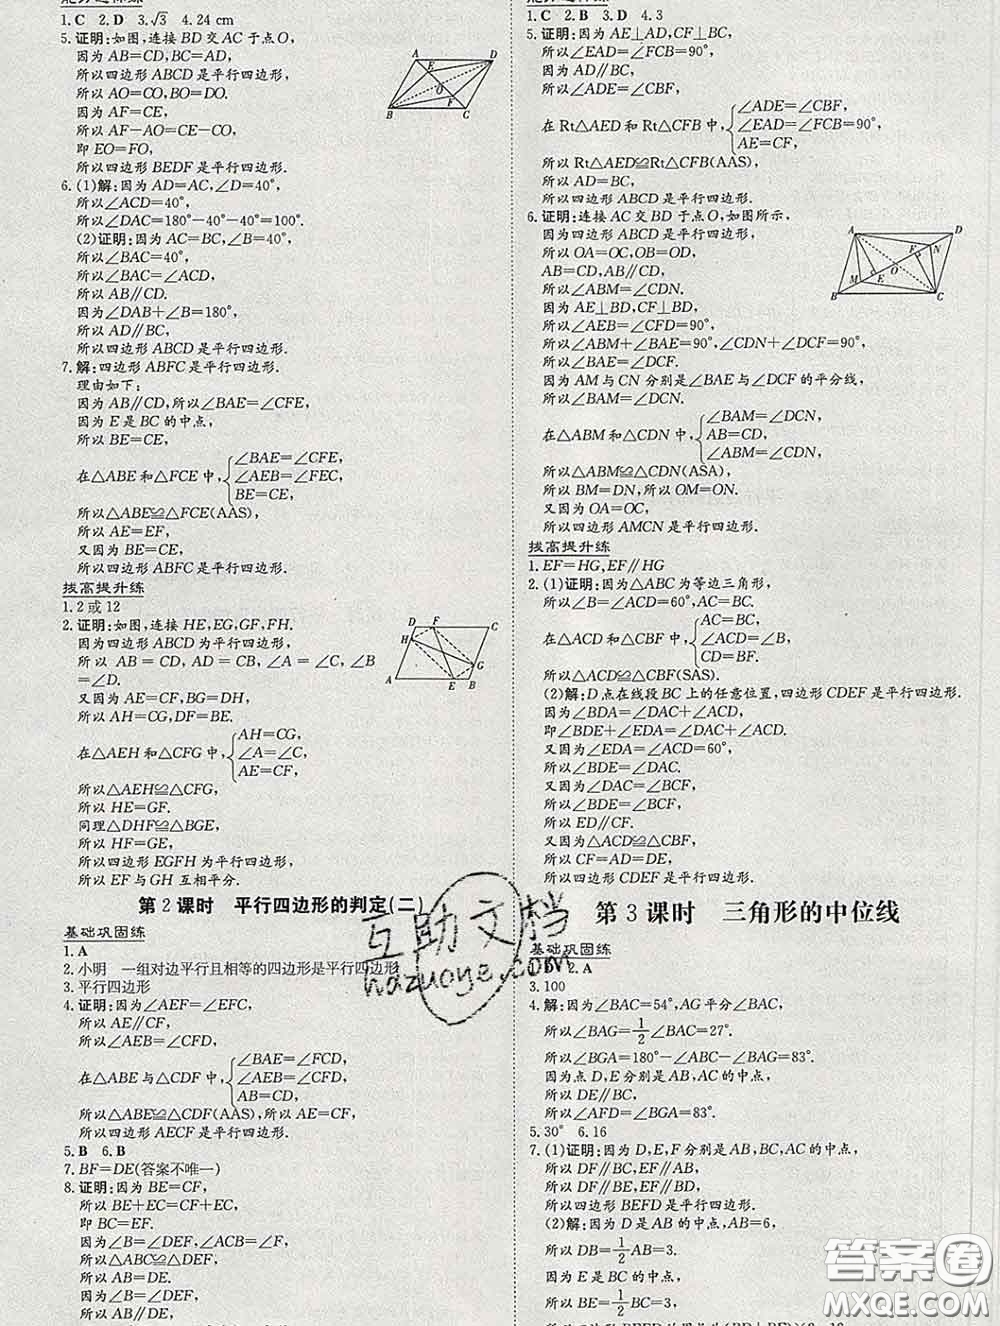 1. C  2. D  3. √3  4. 24 cm
5. 证明:如图,连接 BD 交 AC 于点 O,
因为 AB=CD,BC=AD,
所以四边形 ABCD 是平行四边形.
所以 AO=CO,BO=DO.
因为 AF=CE,
所以 AF-AO=CE-CO,
即 EO=FO,
所以四边形 BEDF 是平行四边形.
A D E O F B C
6. (1)解:因为 AD=AC,∠D=40°,
所以∠ACD=40°,
所以∠DAC=180°-40°-40°=100°.
(2)证明:因为 AC=BC,∠B=40°,
所以∠BAC=40°,
所以∠BAC=∠ACD,
所以 AB∥CD.
因为∠DAB+∠B=180°,
所以 AD∥BC,
所以四边形 ABCD 是平行四边形.
7. 解:四边形 ABFC 是平行四边形.
理由如下:
因为 AB∥CD,所以∠BAE=∠CFE,
因为 E 是 BC 的中点,
所以 BE=CE,
在△ABE 和△FCE 中,{∠BAE=∠CFE,
∠AEB=∠FEC,
BE=CE,
所以△ABE≌△FCE(AAS),
所以 AE=EF,
又因为 BE=CE,
所以四边形 ABFC 是平行四边形.
拔高提升练
1. 2 或 12
2. 证明:如图,连接 HE,EG,GF,FH.
因为四边形 ABCD 为平行四边形,
所以 AB=CD,AD=CB,∠A=∠C,∠B
=∠D.
又因为 AE=CF,BG=DH,
所以 AH=CG,DF=BE.
D F C H G A E B
在△AEH 和△CFG 中,{AH=CG,
∠A=∠C,
AE=CF,
所以△AEH≌△CFG,
所以 HE=GF.
同理△DHF≌△BGE,
所以 HF=GE,
所以四边形 EGFH 为平行四边形,
所以 EF 与 GH 互相平分.
第 2 课时 平行四边形的判定(二)
基础巩固练
1. A
2. 小明 一组对边平行且相等的四边形是平行四边形
3. 平行四边形
4. 证明:因为∠AEF=∠EFC,
所以 AE∥CF,
所以∠AEB=∠CFD,
在△ABE 与△CDF 中,{∠BAE=∠FCD,
∠AEB=∠CFD,
AB=CD,
所以△ABE≌△CDF(AAS),所以 AE=CF,
所以四边形 AECF 是平行四边形.
5. B  6. B
7. BF=DE(答案不唯一)
8. 证明:因为 BE=CF,
所以 BE+EC=CF+EC,
即 BC=EF.
因为∠B=∠DEF,∠ACB=∠F,
所以△ABC≌△DEF,
所以 AB=DE.
因为∠B=∠DEF,
所以 AB∥DE,
1. C  2. B  3. D  4. 3
5. 证明:因为 AE⊥AD,CF⊥BC,
所以∠EAD=∠FCB=90°,
因为 AD∥BC,
所以∠ADE=∠CBF,
在 Rt△AED 和 Rt△CFB 中,{∠ADE=∠CBF,
∠EAD=∠FCB=90°,
AE=CF,
所以 Rt△AED≌Rt△CFB(AAS),
所以 AD=BC.
所以四边形 ABCD 是平行四边形.
6. 证明:连接 AC 交 BD 于点 O,如图所示,
因为四边形 ABCD 是平行四边形,
所以 OA=OC,OB=OD,
AB=CD,AB∥CD,
所以∠ABM=∠CDN.
因为 AE⊥BD,CF⊥BD,
所以∠AEB=∠CFD=90°,
所以∠ABM+∠BAE=90°,∠CDN+∠DCF=90°,
所以∠BAE=∠DCF.
A D F N O M E B C
因为 AM 与 CN 分别是∠BAE 与∠DCF 的平分线,
所以∠BAM=∠DCN.
在△ABM 和△CDN 中,{∠BAM=∠DCN,
AB=CD,
∠ABM=∠CDN,
所以△ABM≌△CDN(ASA),
所以 BM=DN,所以 OM=ON.
又因为 OA=OC,
所以四边形 AMCN 是平行四边形.
拔高提升练
1. EF=HG,EF∥HG
2. (1)证明:因为△ABC 为等边三角形,
所以∠B=∠ACD=60°,AC=BC.
在△ACD 和△CBF 中,{AC=BC,
∠ACD=∠B,
CD=BF.
所以△ACD≌△CBF(SAS).
(2)解:D 点在线段 BC 上的任意位置,四边形 CDEF 是平行四边形.
因为∠BDA=∠DAC+∠ACD,
即∠BDE+∠EDA=∠DAC+∠ACD.
又因为∠EDA=∠ACD=60°,
所以∠BDE=∠DAC.
又因为∠DAC=∠BCF,
所以∠BDE=∠BCF,
所以 ED∥CF.
又因为△ACD≌△CBF,
所以 CF=AD=DE,
所以四边形 CDEF 是平行四边形.
第 3 课时 三角形的中位线
基础巩固练
2. A
3. 100
4. 解:因为∠BAC=54°,AG 平分∠BAC,
所以∠BAG=1/2∠BAC=27°.
所以∠BGA=180°-∠ABC-∠BAG=83°.
因为点 D,E 分别是 AB,AC 的中点,
所以 DE∥BC,
所以∠AFD=∠BGA=83°.
5. 30°  6. 16
7. (1)证明:因为 D,E,F 分别是 AB,BC,AC 的中点,
所以 DF∥BC,EF∥AB,
所以 DF∥BE,EF∥BD,
所以四边形 BEFD 是平行四边形.
(2)解:因为 D 是 AB 的中点,AB=6,
所以 DB=1/2AB=3.
因为 E 是 BC 的中点,
所以 BE=1/2BC=3,
互助文档
hazuoye.com
答案圈
MXQE.COM